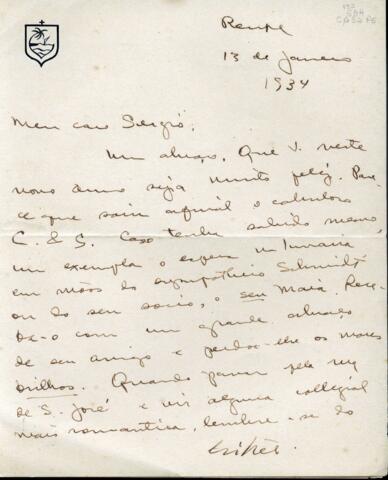 Recife
13 de Janeiro
1934
Meu caro Sergio:
Um abraço. Que V. neste
novo anno seja muito feliz. Pare-
ce que saiu afinal o calunioso
C. & S. Caso tenha sahido mesmo,
um exemplar o espera na livraria
em mãos do sympathico Schmidt
ou do seu socio, o seu Maia. Rece-
ba-o com um grande abraço
de seu amigo e perdoe-lhe os maos
brilhos. Quando passar pela rua
de S. José e vir alguma collegial
mais romantica, lembre-se do